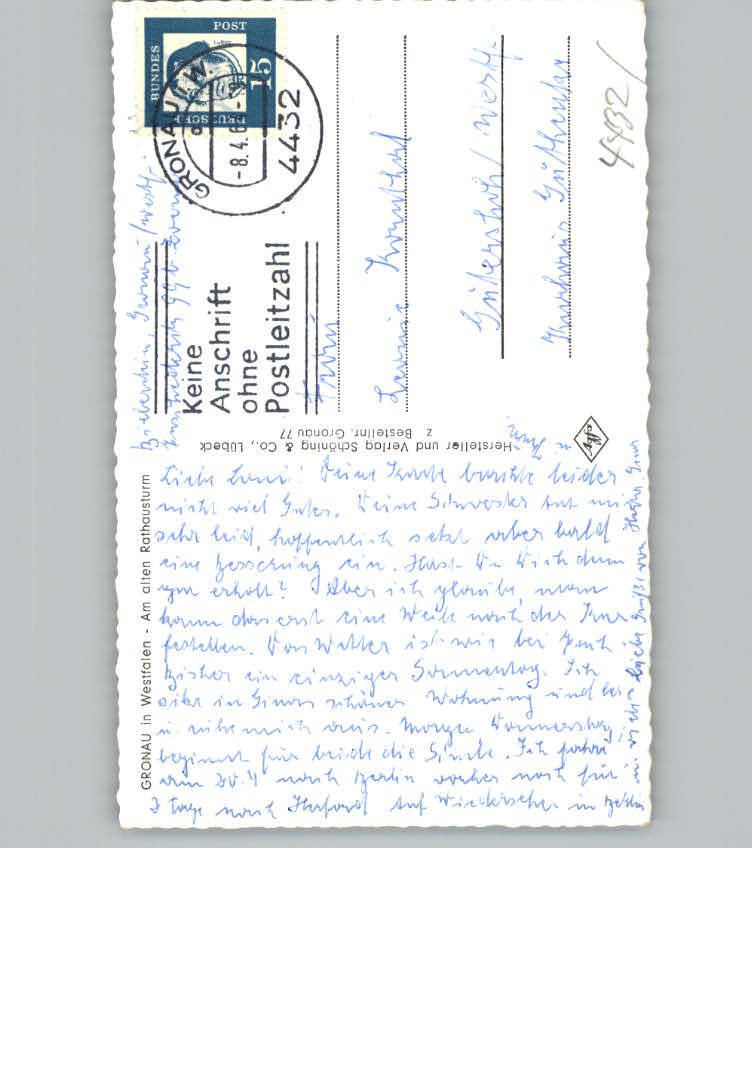 BUNDES
POST
DEUTSCHE
15
GRONAU (W
-8.4.6
4432
Keine
Anschrift
ohne
Postleitzahl
4432
Frau
Gütersloh / Westf.
Hersteller und Verlag Schöning & Co., Lübeck
z Bestellnr. Gronau 77
GRONAU in Westfalen - Am alten Rathausturm
Liebe Leni! Deine Karte brachte leider
nicht viel Gutes. Deine Schwester tut mir
sehr leid, hoffentlich setzt aber bald
eine Besserung ein. Hast Du Dich denn
erholt? Aber ich glaube, man
kann das erst eine Weile nach der Kur
feststellen. Das Wetter ist wie bei Euch.
Bisher ein einziger Sonnentag. Ich
sitze in schöner Wohnung und lese
u. ruhe mich aus. Morgen Donnerstag,
beginnt für beide die Schule. Ich fahre
am 20.4 nach Berlin vorher noch für
2 Tage nach Herford Auf Wiedersehen in Berlin